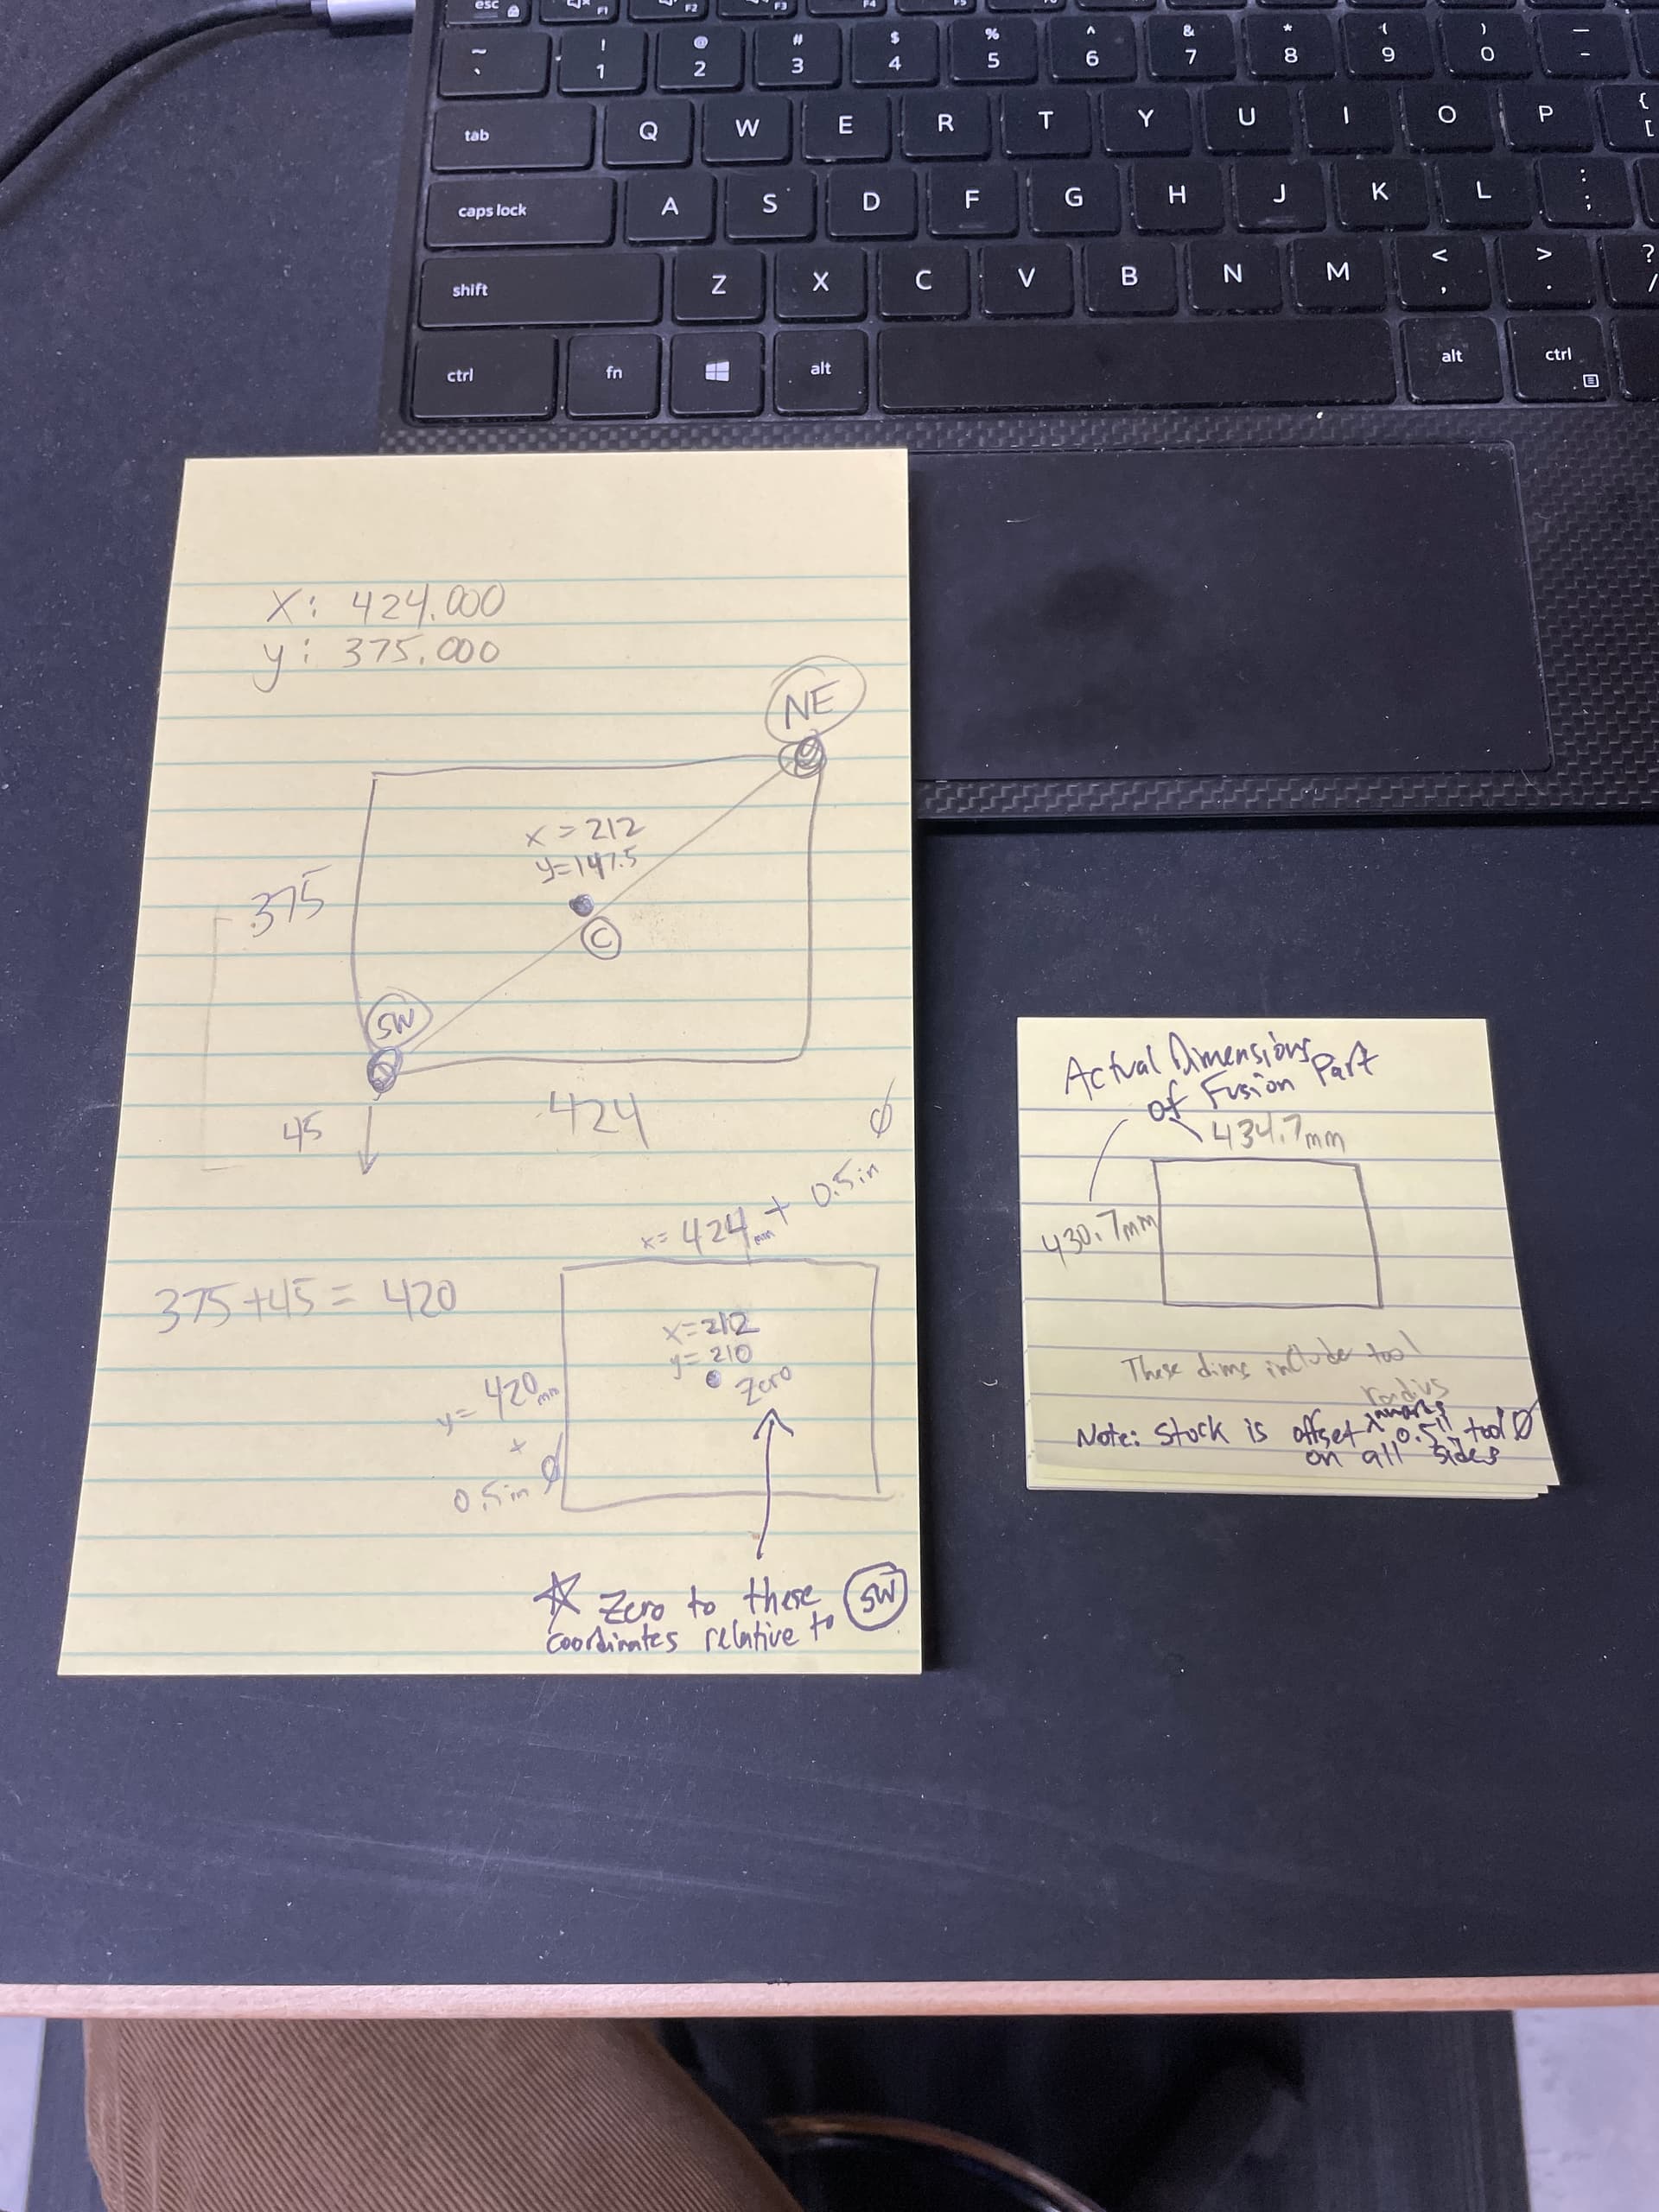 esc F1 F2 F3 F4 F5
~ ` ! 1 @ 2 # 3 $ 4 % 5 ^ 6 & 7 * 8 ( 9 ) 0 _ -
tab Q W E R T Y U I O P { [
caps lock A S D F G H J K L : ;
shift Z X C V B N M < , > . ? /
ctrl fn alt alt ctrl
X: 424.000
y: 375.000
NE
x = 212
y=147.5
375
C
SW
45
424
Ø
x= 424mm + 0.5in
375+45 = 420
x=212
y= 210
Zero
y= 420mm
+
0.5in Ø
☆ Zero to these SW
coordinates relative to
Actual Dimensions
of Fusion Part
434.7mm
430.7mm
These dims include tool
radius
inwards
Note: Stock is offset 0.5" tool Ø
on all sides